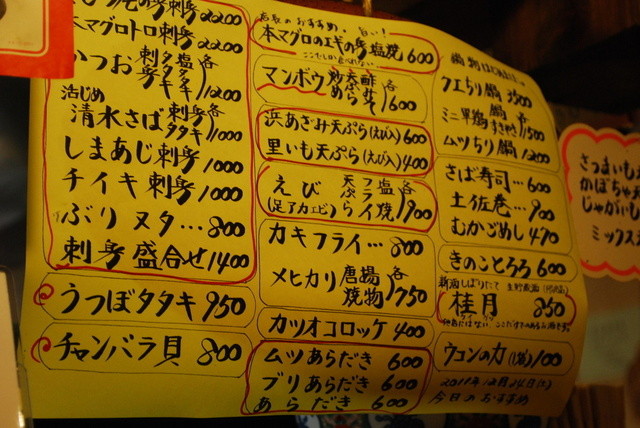 刺身 2200
本マグロトロ刺身 2200
かつお 刺身 塩タタキ タタキ 各1200
活じめ
清水さば 刺身 タタキ 各1000
しまあじ刺身 1000
チイキ刺身 1000
ぶりヌタ…800
刺身盛合せ 1400
うつぼタタキ 950
チャンバラ貝 800
店長のおすすめ。旨い!
本マグロのエギの身塩焼 600
ここでしか食べれない
マンボウ 炒め 天ぷら 酢みそ 各600
浜あざみ天ぷら(えび入) 600
里いも天ぷら(えび入) 400
えび 天ぷら フライ 塩焼 各900
(足了カエビ)
カキフライ…800
メヒカリ 唐揚 焼物 各750
カツオコロッケ 400
ムツあらだき 600
ブリあらだき 600
あらだき 600
鍋物はじめました
クエちり鍋 3500
ミニ軍鶏 鍋 すきやき 各1500
ムツちり鍋 1200
さば寿司…600
土佐巻…900
むかごめし 470
きのことろろ 600
新酒しぼりたて 生貯蔵酒
桂月 850
他店にはない、ここだけのあらみ酒です。
ウコンの力(1袋) 100
2011年12月24日(土)
今日のおすすめ
さつまいも
かぼちゃ
じゃがいも
ミックス